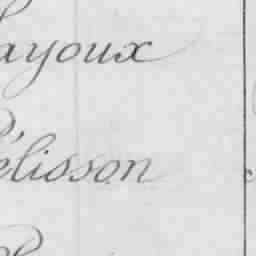 ayoux
élisson